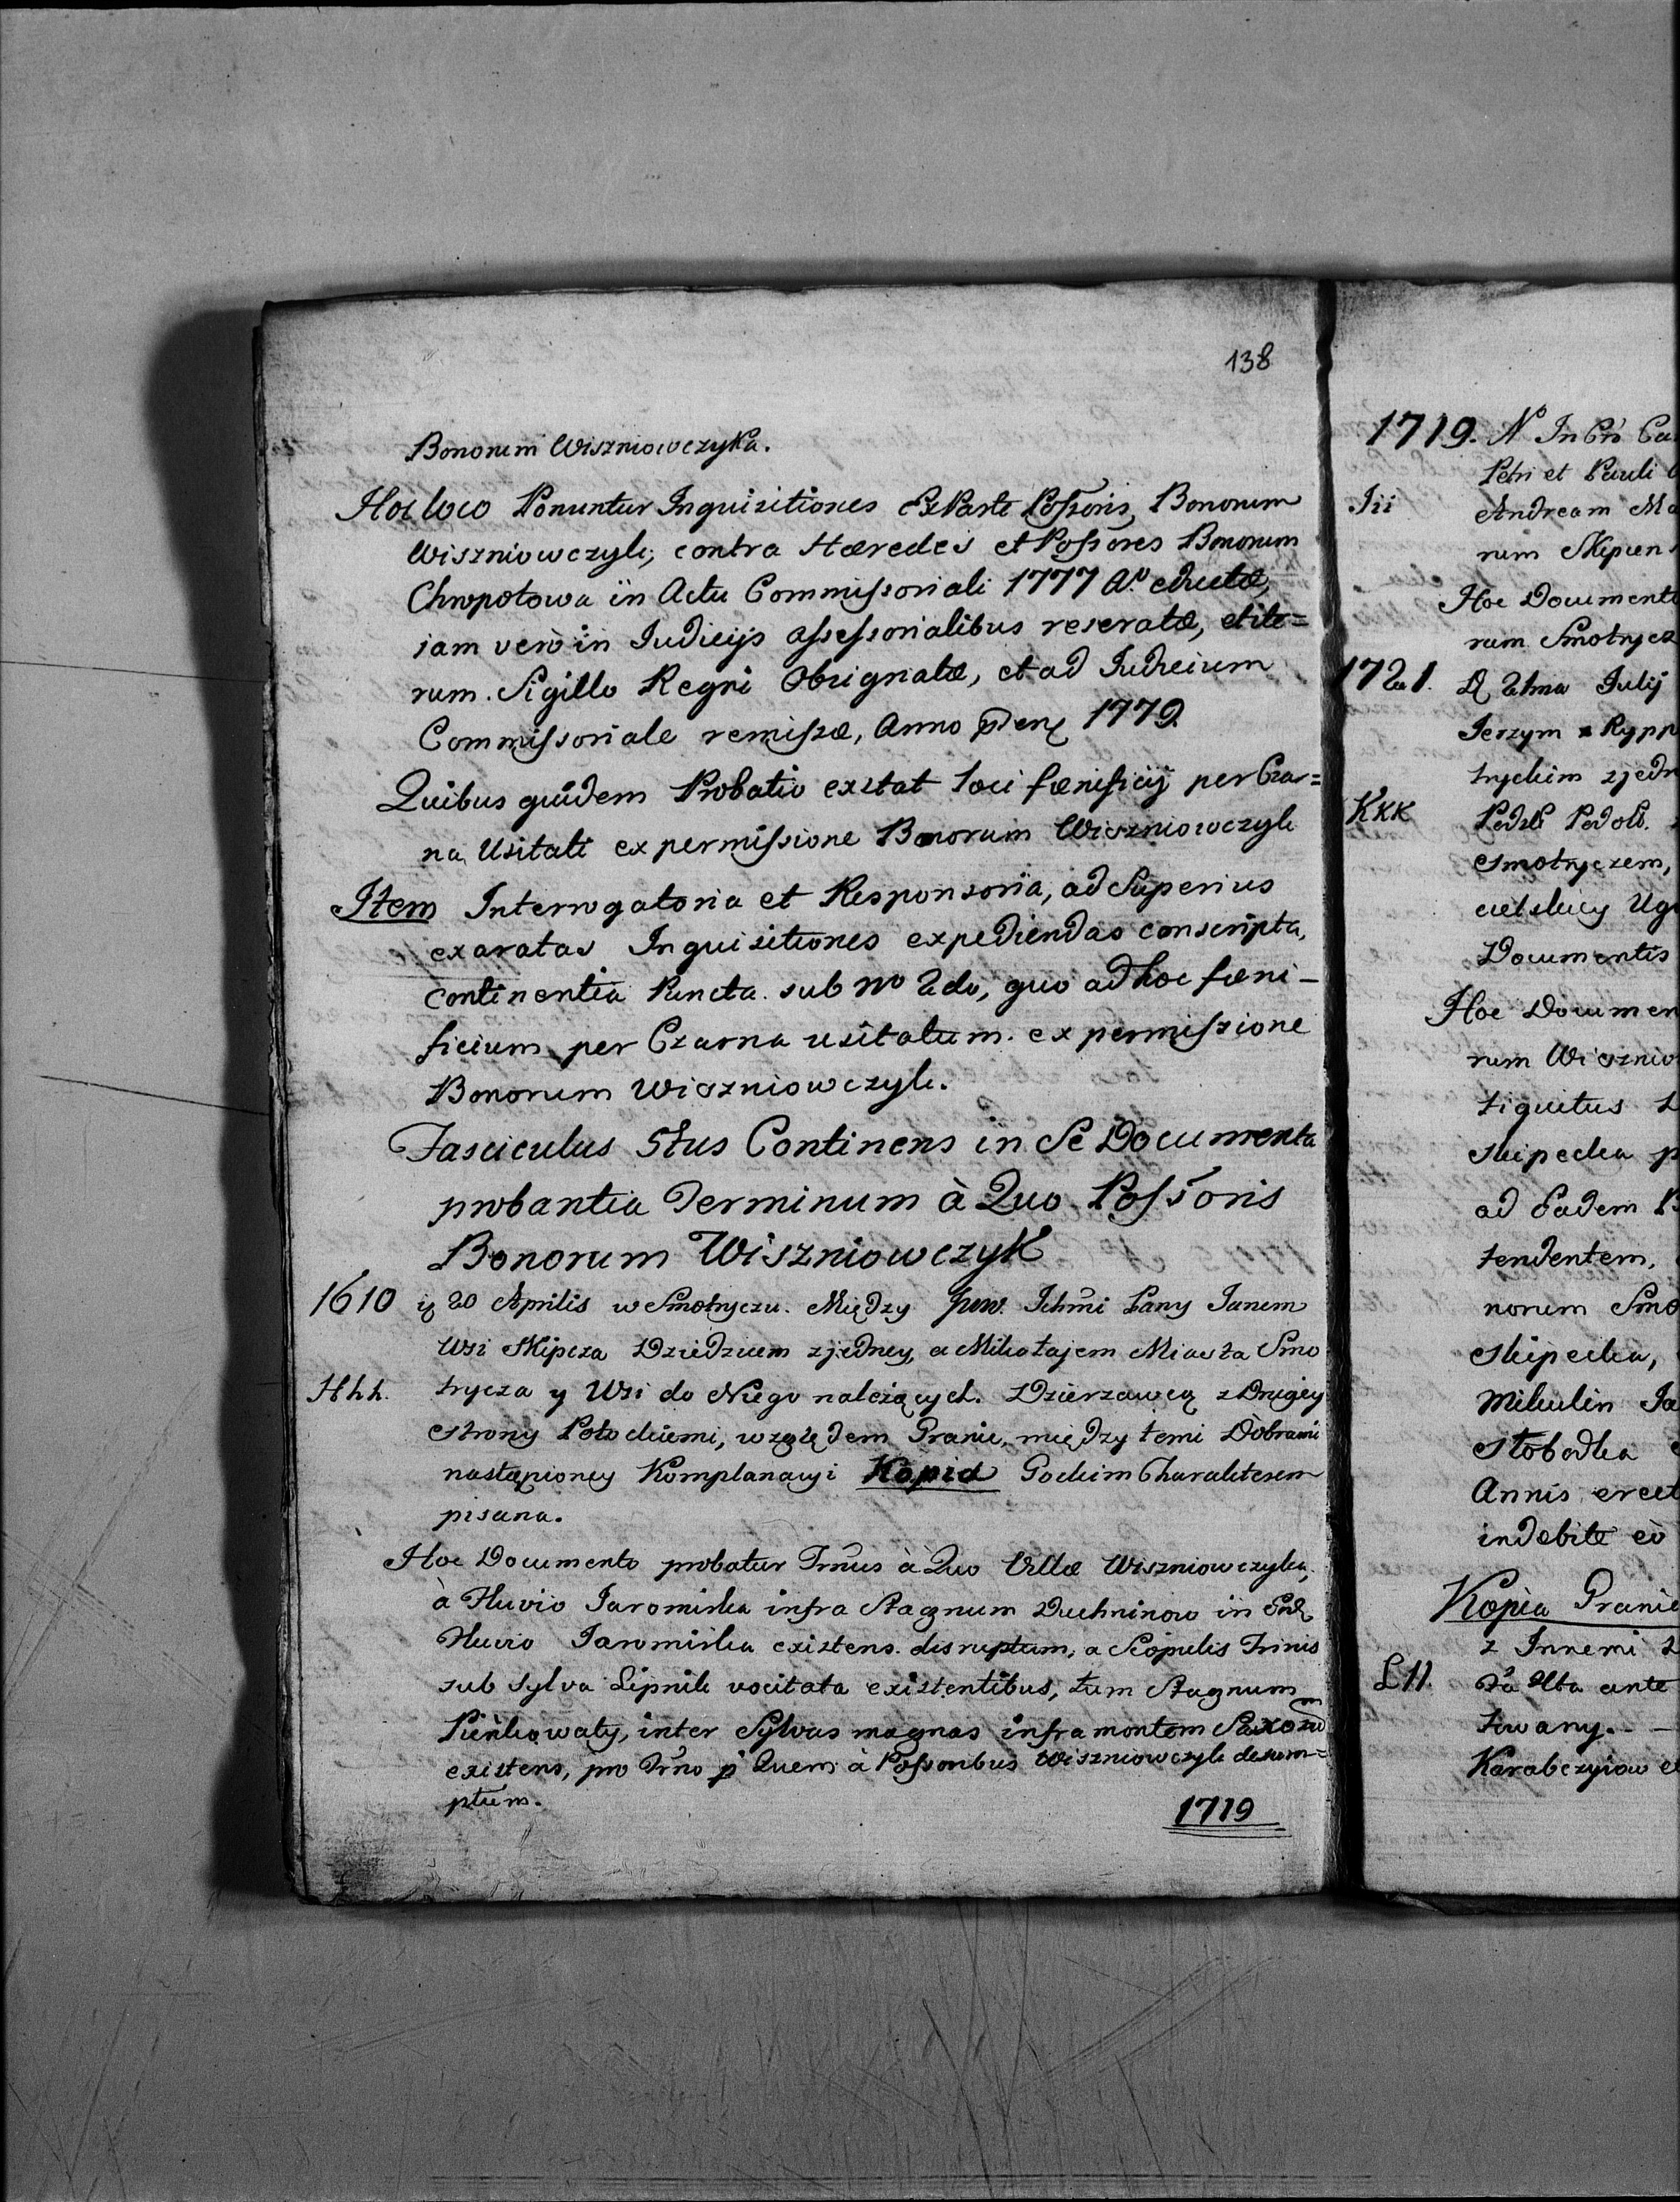 138
Bonorum Wiszniowczyka.
Hoc loco Ponuntur Inquisitiones Ex Parte Possoris Bonorum
Wiszniowczyk, contra Hæredes et Possores Bonorum
Chropotowa in Actu Commissoriali 1777 Aº. eductæ,
iam verò in Iudicijs assessorialibus reseratæ, et ite=
rum Sigillo Regni Obsignatæ, et ad Iudicium
Commissoriale remissæ, Anno 1779
Quibus quidem Probatio extat loci fœnificij per Czar=
na Usitati ex permissione Bonorum Wiszniowczyk
Item Interrogatoria et Responsoria, ad Superius
exaratas Inquisitiones expediendas conscripta,
continentia Puncta sub Nº 2do, quo ad hoc fœni-
ficium per Czarna usitatum ex permissione
Bonorum Wiszniowczyk.
Fasciculus 5tus Continens in Se Documenta
probantia Terminum à Quo Possoris
Bonorum Wiszniowczyk
1610 20 Aprilis w Smotryczu. Między Jww. Ichmi Pany Janem
Wsi Skipcza Dziedzicem z jedney, a Mikołajem Miasta Smo
Hhh. trycza y Wsi do Niego należących Dzierzawcą z Drugiey
strony Potockiemi, względem Granic, między temi Dobrami
nastąpioney Komplanacyi Kopia Gockim Charakterem
pisana.
Hoc Documento probatur Trnus à Quo Villæ Wiszniowczyka,
à Fluvio Jaromirka infra Stagnum Duchninow in
Fluvio Jaromirka existens disruptum, a Scopulis Trinis
sub Sylva Lipnik vocitata existentibus, tum Stagnum
Pieńkowaty, inter Sylvas magnas infra montem
existens, pro Trno p Quem à Possoribus Wiszniowczyk desum=
ptum.
1719
1719. Nº In
Petri et Pauli
Iii Andream
rum
Hoc Document
rum Smotrycz
1721. D 2tma Julij
Jerzym
tryckim zjedn
Kkk
Smotryczem,
Documentis
Hoc Documen
rum Wisznio
tiquitus
skipecka p
ad Eadem
tendentem,
norum Smo
skipecka,
Mikulin
Słobodka
Annis erect
indebite eò
Kopia Granic
z Innemi
Lll. ante
Karabczyiow